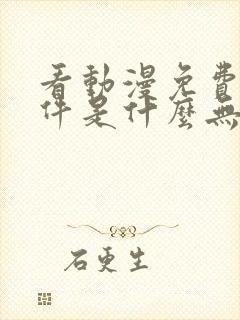 看動漫免費
件是什麼無
石更生